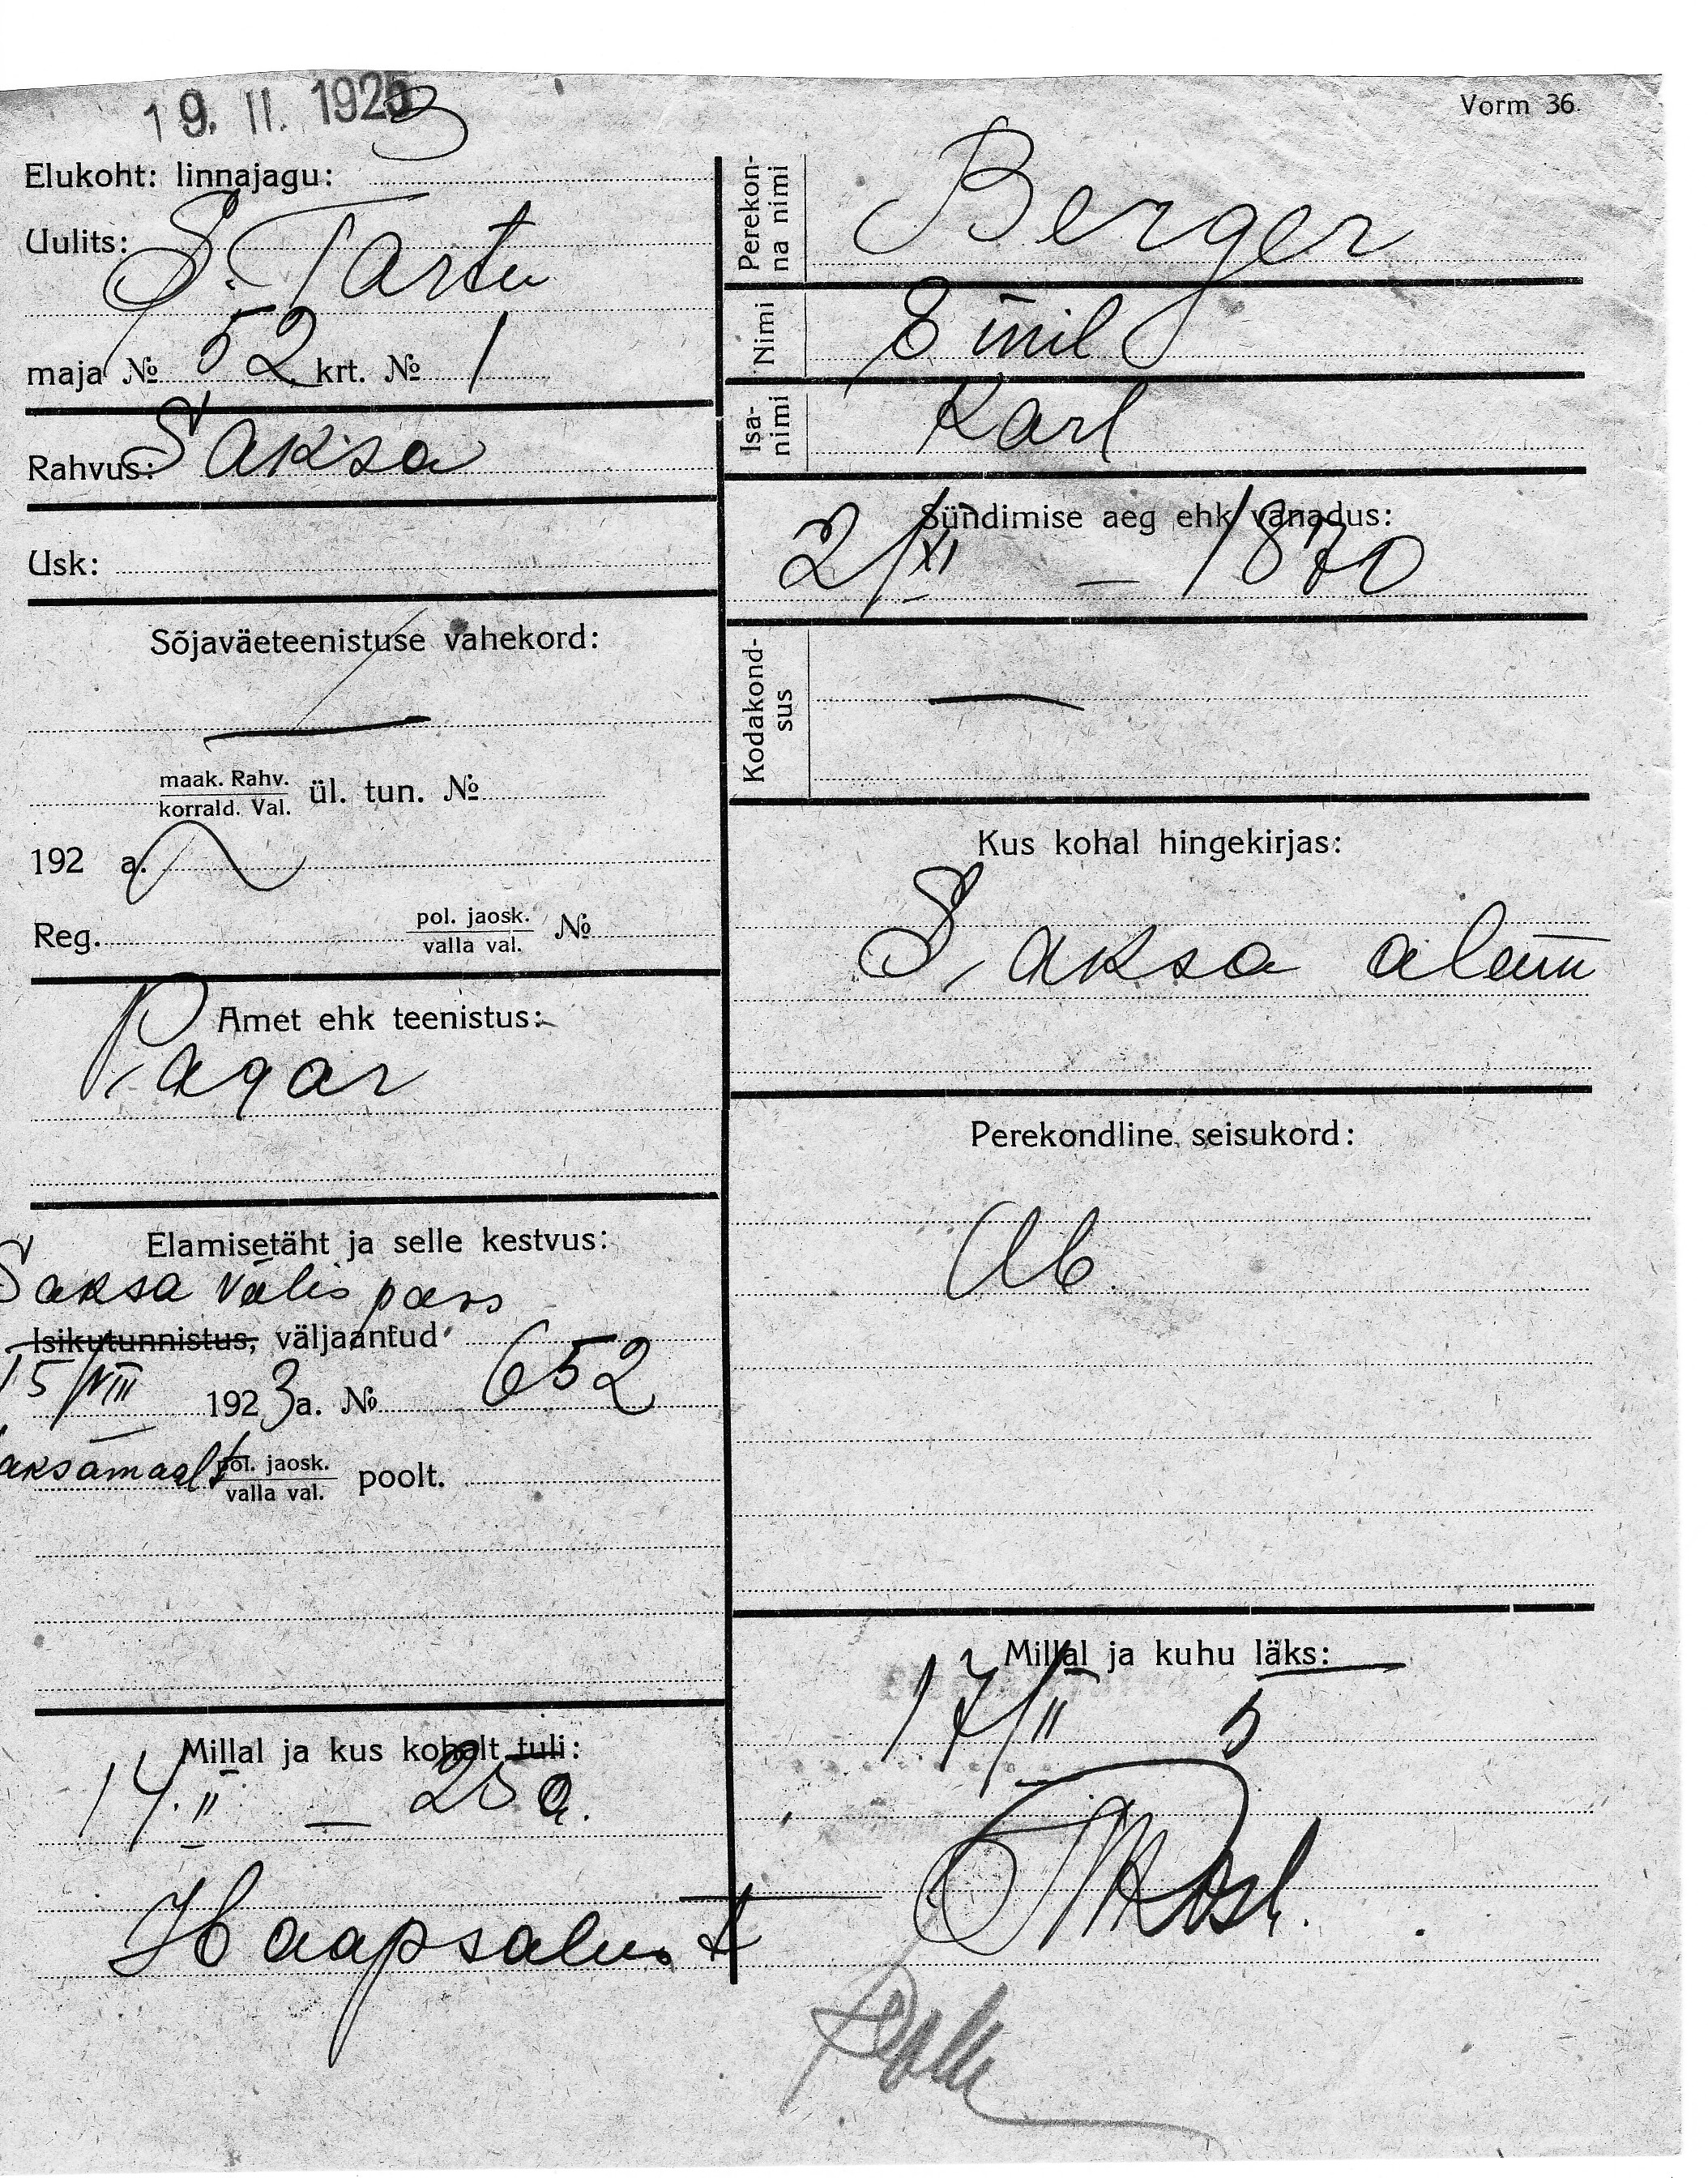 19. II. 1925
Vorm 36.
Elukoht: linnajagu:
Uulits: S. Tartu
maja № 52 krt. № 1
Rahvus: Saksa
Usk:
Sõjaväeteenistuse vahekord:
—
maak. Rahv.
korrald. Val. ül. tun. №
192 a.
Reg. pol. jaosk.
valla val. №
Amet ehk teenistus:
Pagar
Elamisetäht ja selle kestvus:
Saksa välis pass
Isikutunnistus, väljaantud
15/VIII 1923 a. № 652
aksamaalt pol. jaosk.
valla val. poolt.
Millal ja kus kohalt tuli:
14. II — 25 a.
Haapsalust
Perekonna nimi
Berger
Nimi
Emil
Isanimi
Karl
Sündimise aeg ehk vanadus:
21/XI — 1870
Kodakondsus
—
Kus kohal hingekirjas:
Saksa alam
Perekondline seisukord:
Ab.
Millal ja kuhu läks:
17/II 5